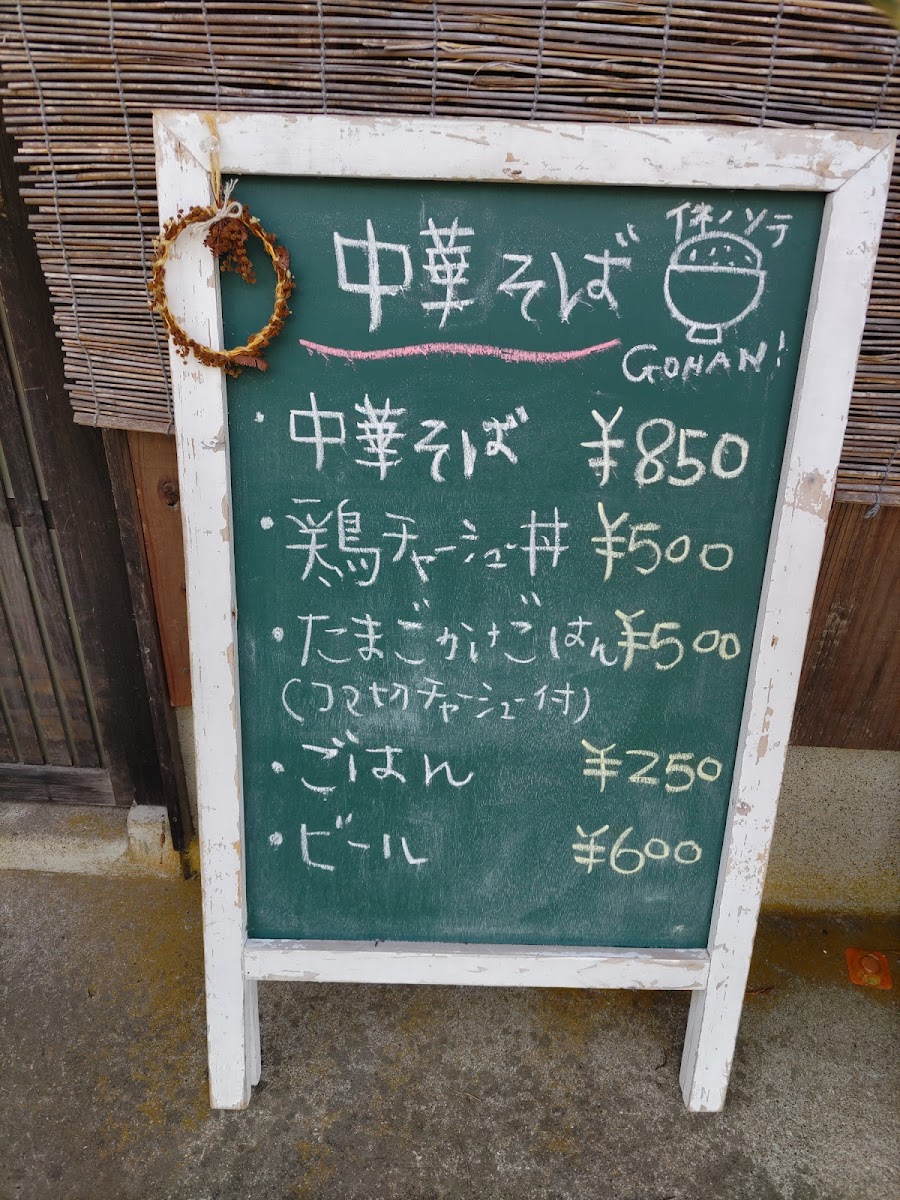 中華そば
休ノソラ
GOHAN!
・中華そば ¥850
・鶏チャーシュー丼 ¥500
・たまごかけごはん ¥500
(コマ切チャーシュー付)
・ごはん ¥250
・ビール ¥600